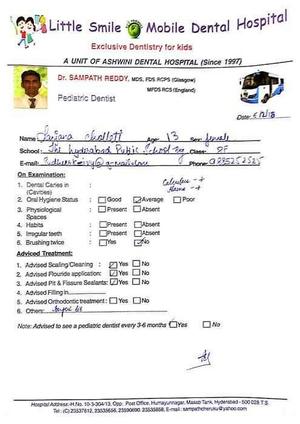 Little Smile Mobile Dental Hospital
Exclusive Dentistry for kids
A UNIT OF ASHWINI DENTAL HOSPITAL (Since 1997)
Dr. SAMPATH REDDY, MDS, FDS RCPS (Glasgow)
MFDS RCS (England)
Pediatric Dentist
Date: 6/12/18
Name Age: 13 Sex: female
School: The hyderabad Public School Class:
E-mail: Phone:
On Examination:
1. Dental Caries in (Cavities) :
2. Oral Hygiene Status : Good Average Poor
3. Physiological Spaces : Present Absent
4. Habits : Present Absent
5. Irregular teeth : Present Absent
6. Brushing twice : Yes No
Adviced Treatment:
1. Advised Scaling/Cleaning : Yes No
2. Advised Flouride application: Yes No
3. Advised Pit & Fissure Sealants: Yes No
4. Advised Filling in
5. Advised Orthodontic treatment : Yes No
6. Others:
Note: Advised to see a pediatric dentist every 3-6 months Yes No
Hospital Address-H.No. 10-3-304/13, Opp. Post Office, Humayunnagar, Masab Tank, Hyderabad - 500 028 T.S.
Tel: (C) 23537612, 23535656, 23590690, 23535858, E-mail : sampathcheruku@yahoo.com